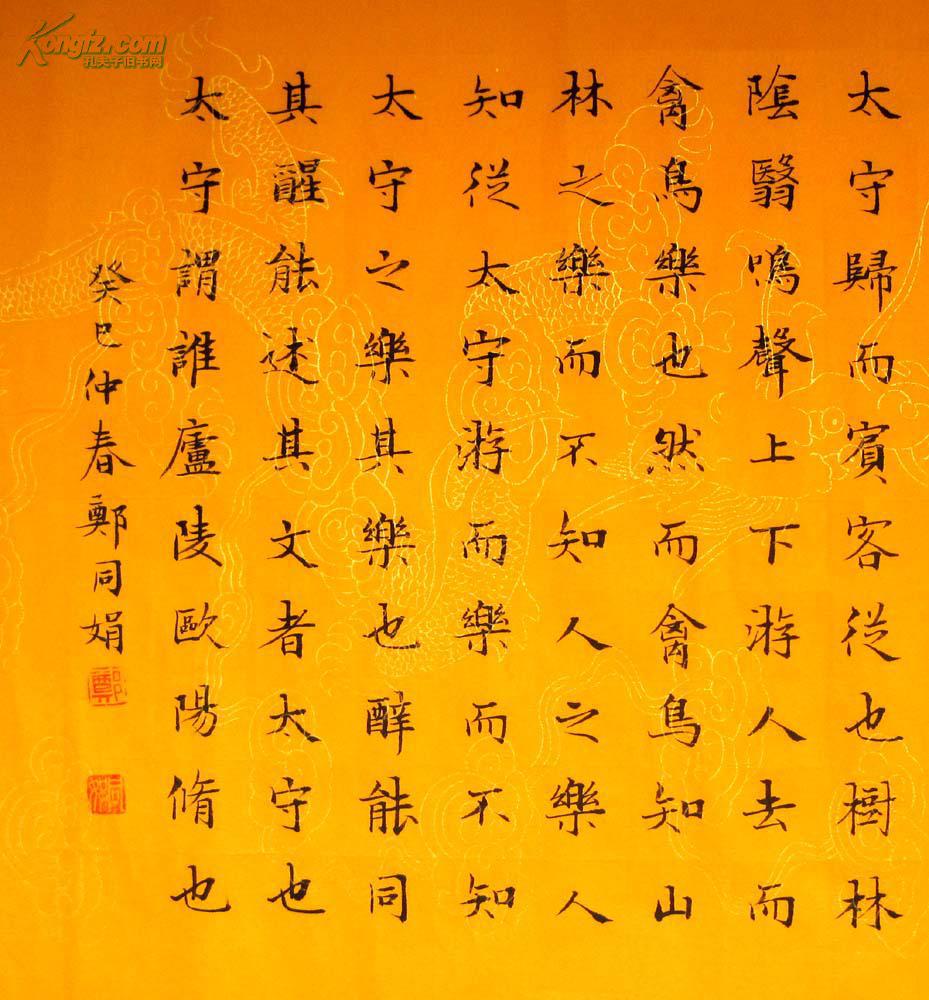 太守歸而賓客從也樹林
陰翳鳴聲上下游人去而
禽鳥樂也然而禽鳥知山
林之樂而不知人之樂人
知從太守游而樂而不知
太守之樂其樂也醉能同
其醒能述其文者太守也
太守謂誰廬陵歐陽脩也
癸巳仲春鄭同娟
鄭
Kongfz.com
孔夫子旧书网